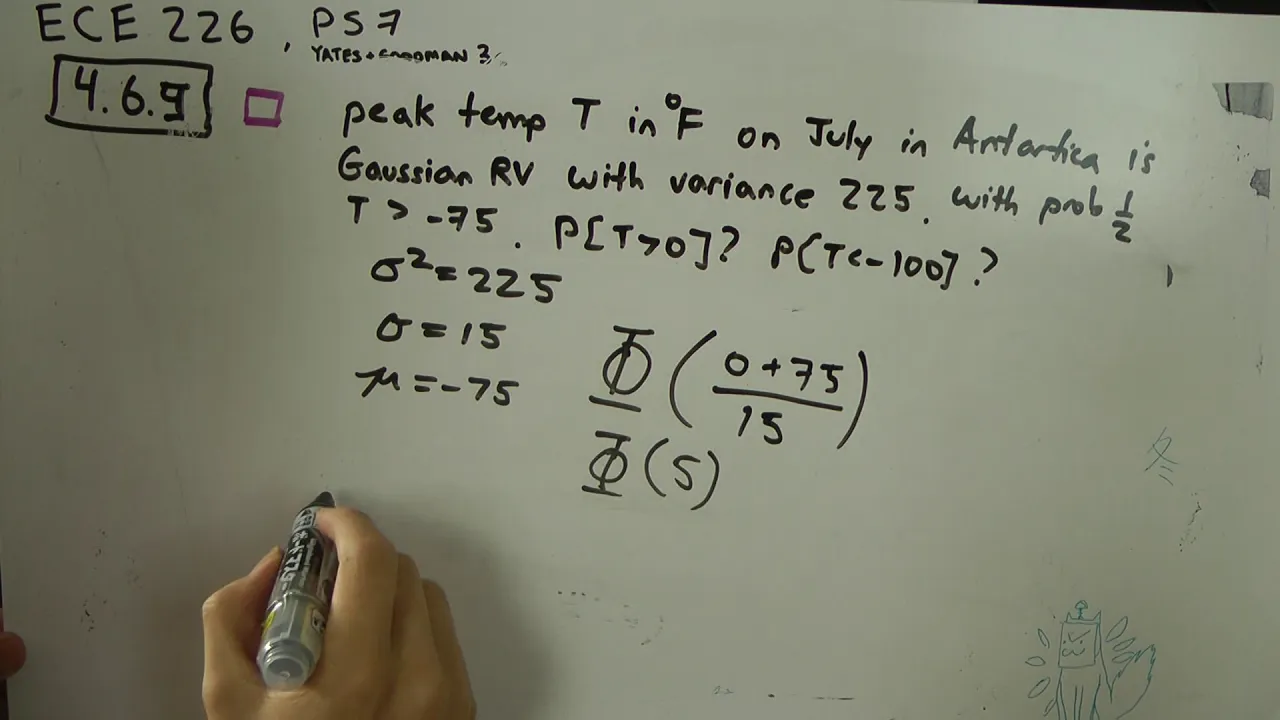 ECE 226, PS7
YATES + GOODMAN 3
4.6.9
peak temp T in °F on July in Antartica is
Gaussian RV with variance 225. with prob 1/2
T > -75. P[T>0]? P[T<-100]?
σ² = 225
σ = 15
μ = -75
Φ(0 + 75 / 15)
Φ(5)
冬